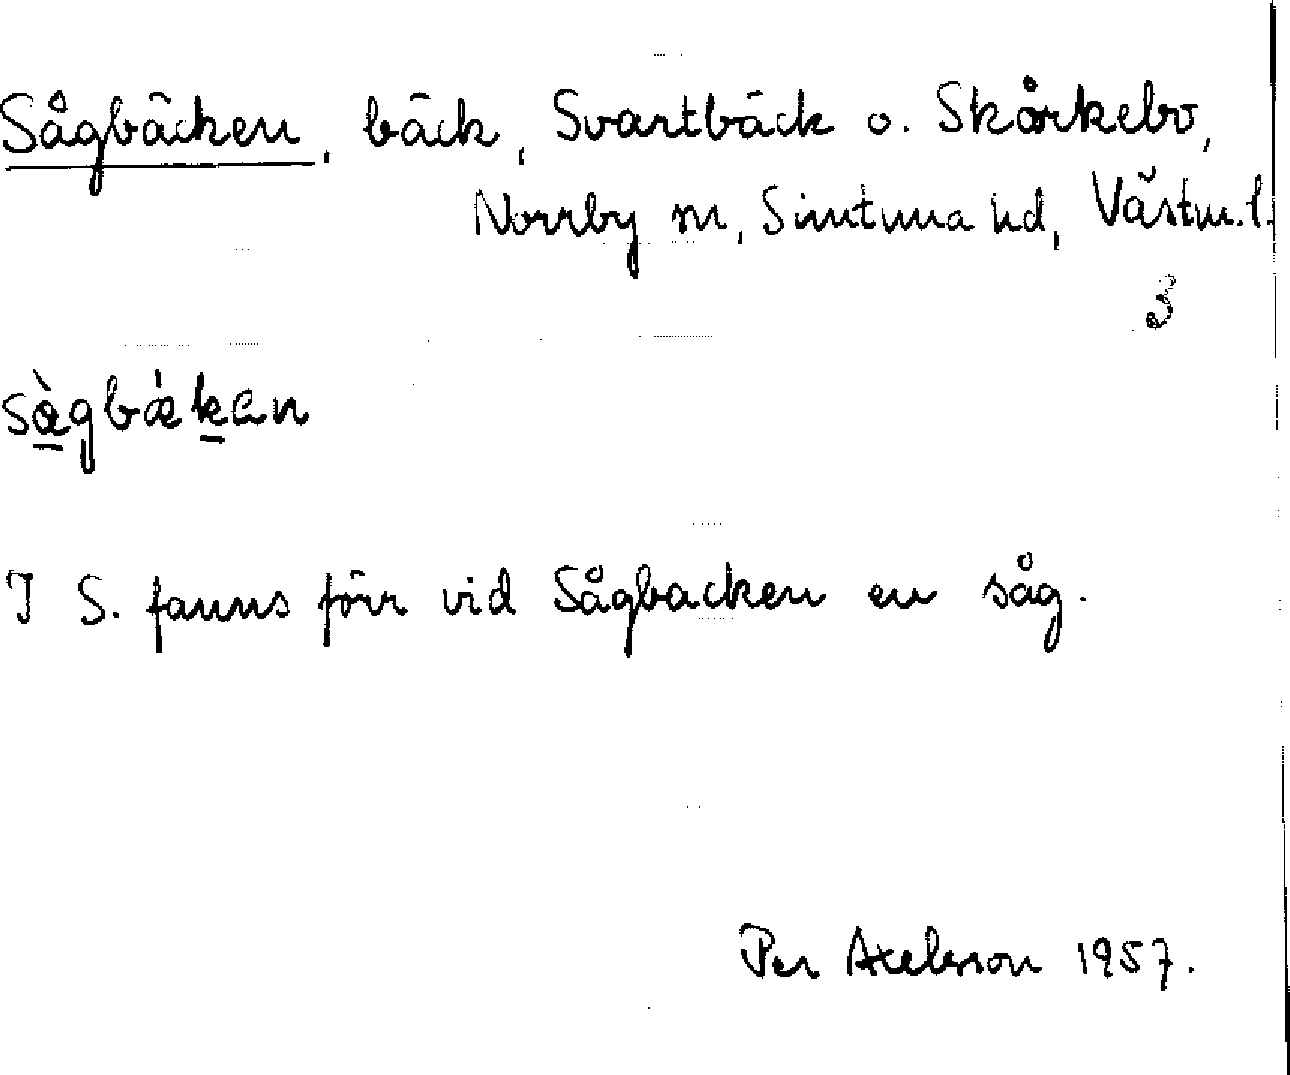 Sågbäcken, bäck, Svartbäck o. Skårkebo,
Norrby sn, Simtuna hd, Västm. l.
3
sàgbǽkan
I S. fanns förr vid Sågbacken en såg.
Per Axelsson 1957.